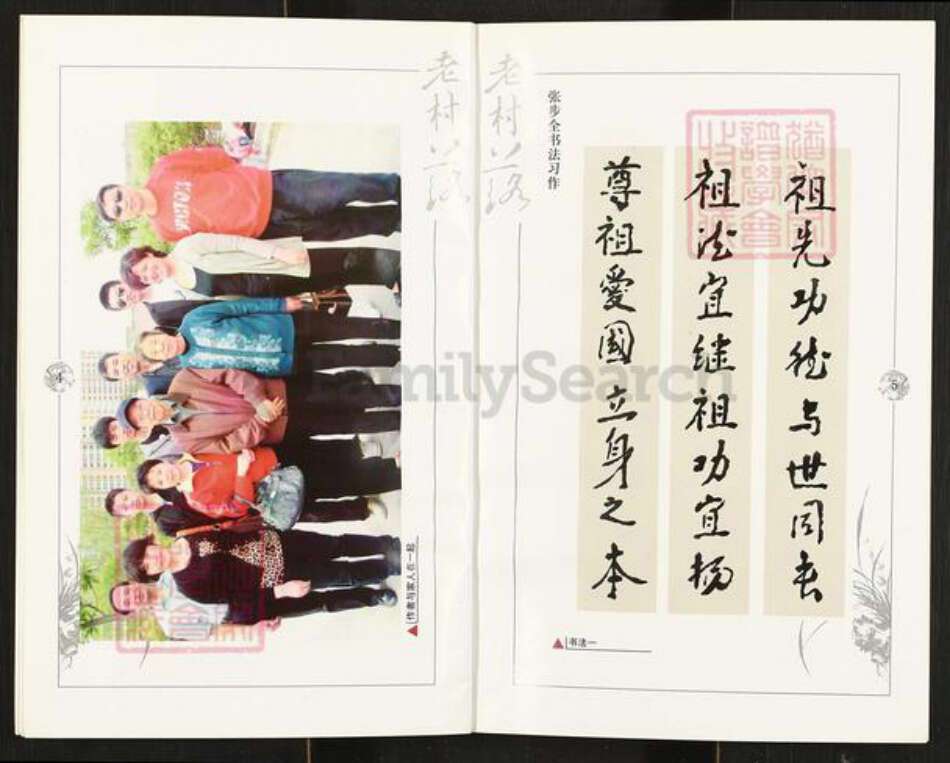 老村
作者与家人在一起
4
老村
张步全书法习作
祖先功德与世同长
祖法宜继祖功宜扬
尊祖爱國立身之本
书法一
5
譜學會
FamilySearch